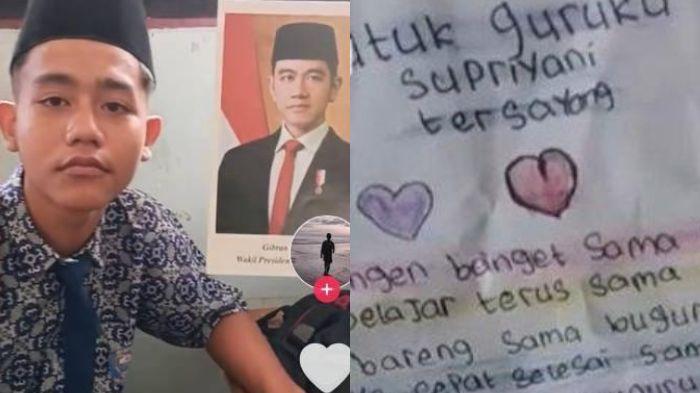 Gibran
Wakil Presiden
tuk guruku
supriyani
tersayang
ngen banget sama
belajar terus sama
bareng sama bugur
cepat selesai sam